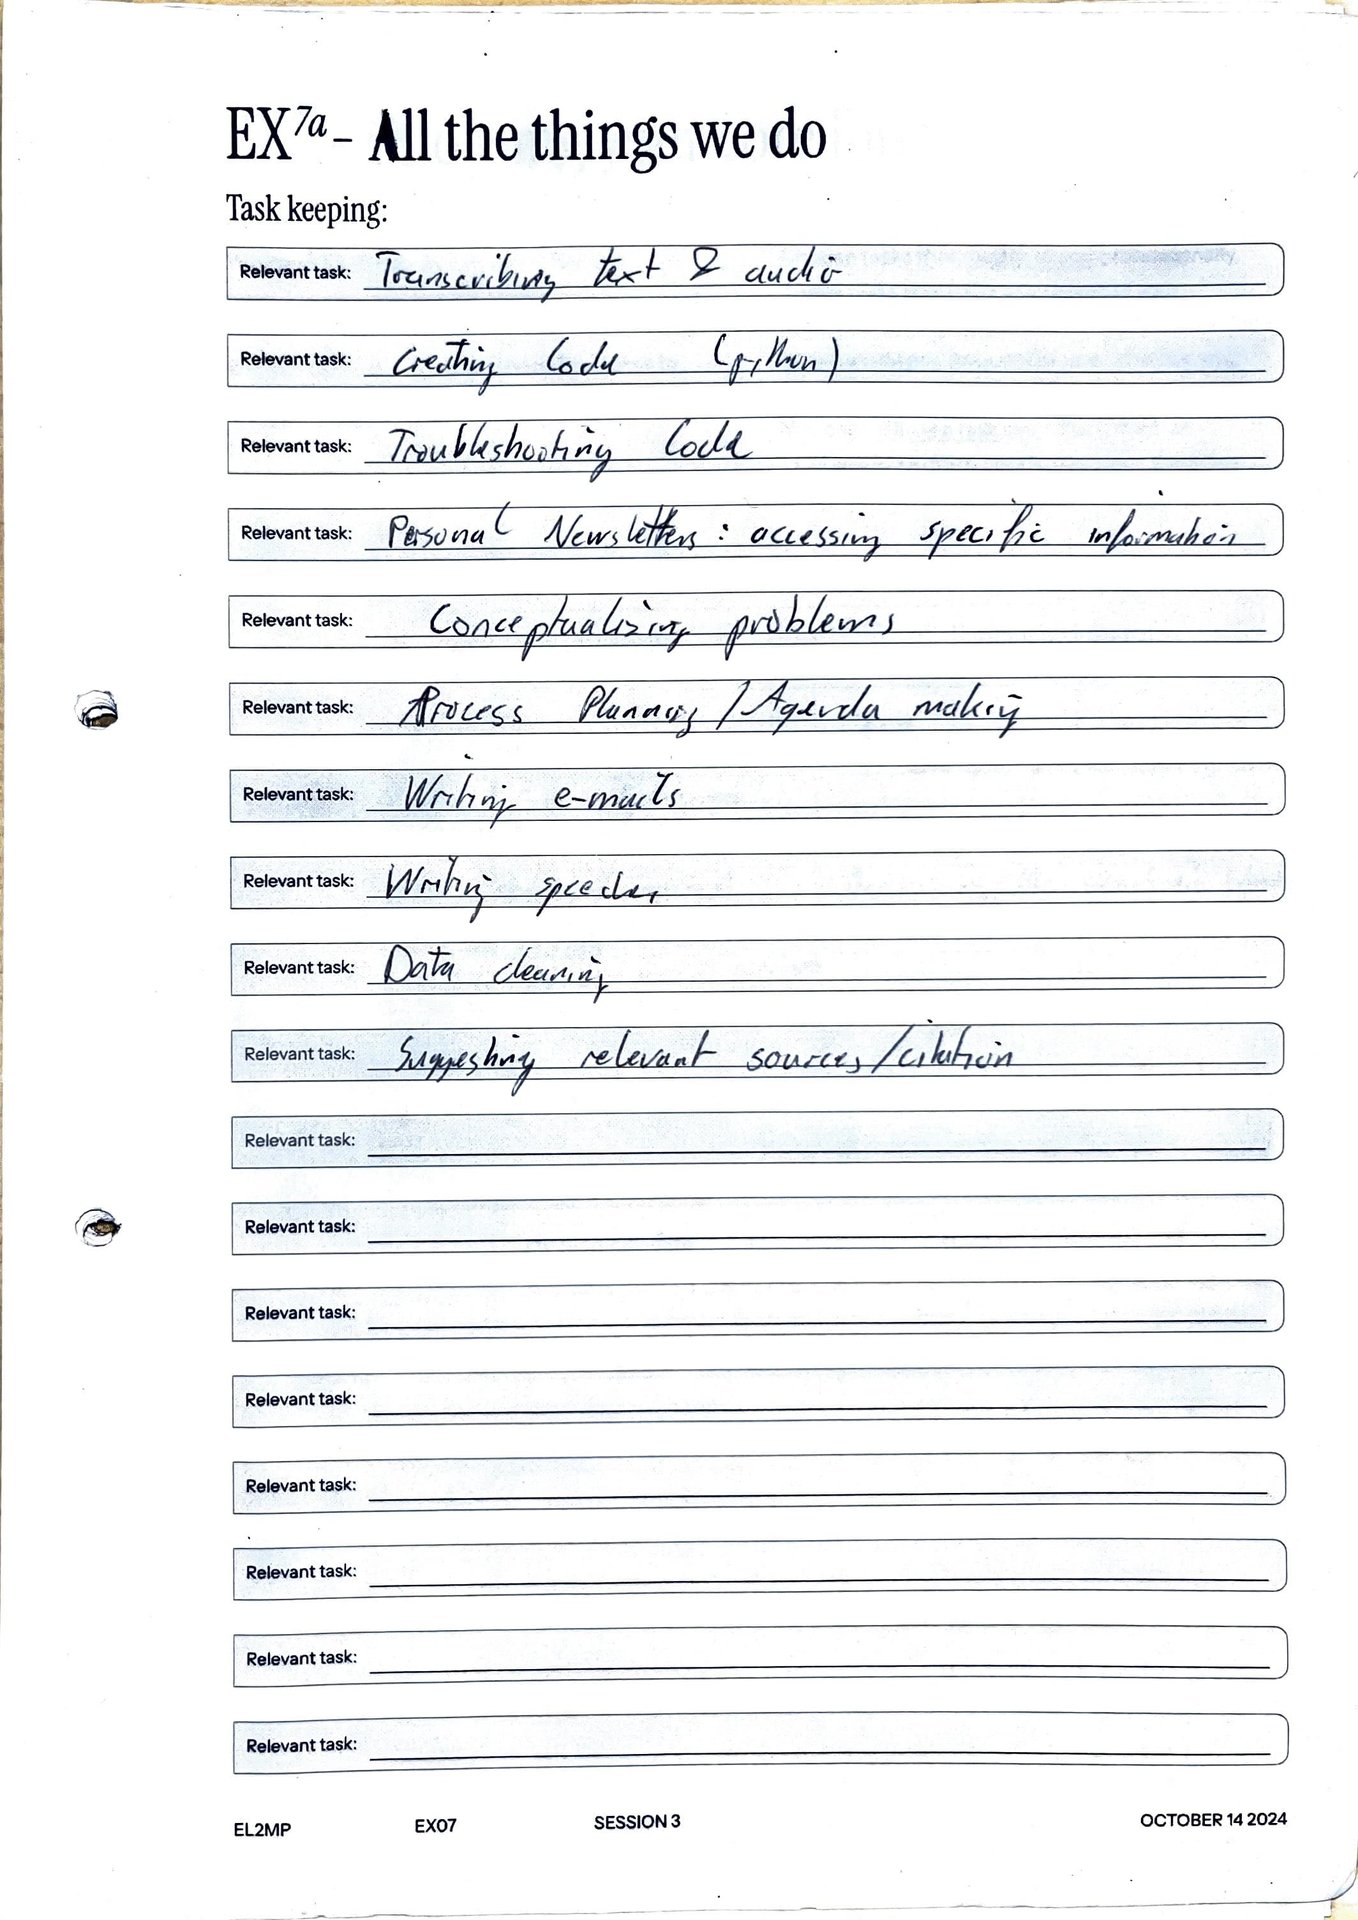 EX7a – All the things we do
Task keeping:
Relevant task: Transcribing text & audio
Relevant task: Creating Code (python)
Relevant task: Troubleshooting Code
Relevant task: Personal Newsletters: accessing specific information
Relevant task: Conceptualizing problems
Relevant task: Process Planning / Agenda making
Relevant task: Writing e-mails
Relevant task: Writing speeches
Relevant task: Data cleaning
Relevant task: Suggesting relevant sources/citation
Relevant task:
Relevant task:
Relevant task:
Relevant task:
Relevant task:
Relevant task:
Relevant task:
Relevant task:
EL2MP EX07 SESSION 3 OCTOBER 14 2024